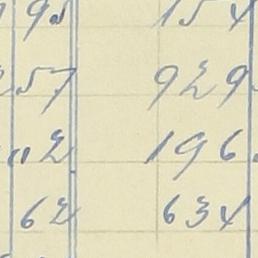 95 154
57 929
112 196
62 634